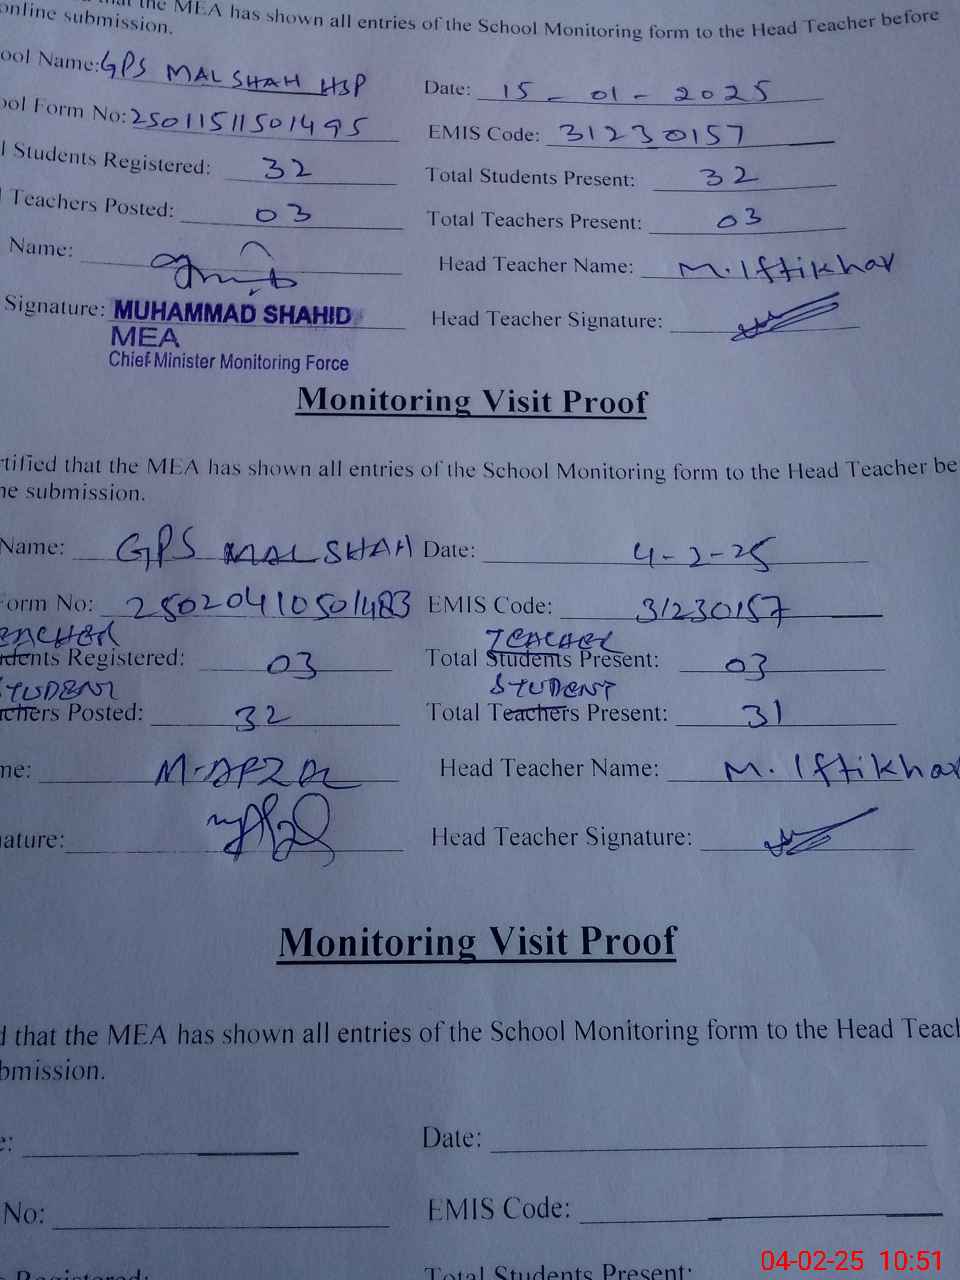 that the MEA has shown all entries of the School Monitoring form to the Head Teacher before
online submission.
ool Name: GPS MALSHAH HSP Date: 15-01-2025
ool Form No: 25011511501495 EMIS Code: 31230157
l Students Registered: 32 Total Students Present: 32
l Teachers Posted: 03 Total Teachers Present: 03
Name: Head Teacher Name: M. Iftikhar
Signature: MUHAMMAD SHAHID Head Teacher Signature:
MEA
Chief Minister Monitoring Force
Monitoring Visit Proof
rtified that the MEA has shown all entries of the School Monitoring form to the Head Teacher be
ne submission.
Name: GPS MALSHAH Date: 4-2-25
orm No: 25020410501483 EMIS Code: 31230157
EACHER TEACHER
dents Registered: 03 Total Students Present: 03
STUDENT STUDENT
chers Posted: 32 Total Teachers Present: 31
me: Head Teacher Name: M. Iftikhar
ature: Head Teacher Signature:
Monitoring Visit Proof
d that the MEA has shown all entries of the School Monitoring form to the Head Teach
bmission.
e: Date:
No: EMIS Code:
Registered: Total Students Present:
04-02-25 10:51